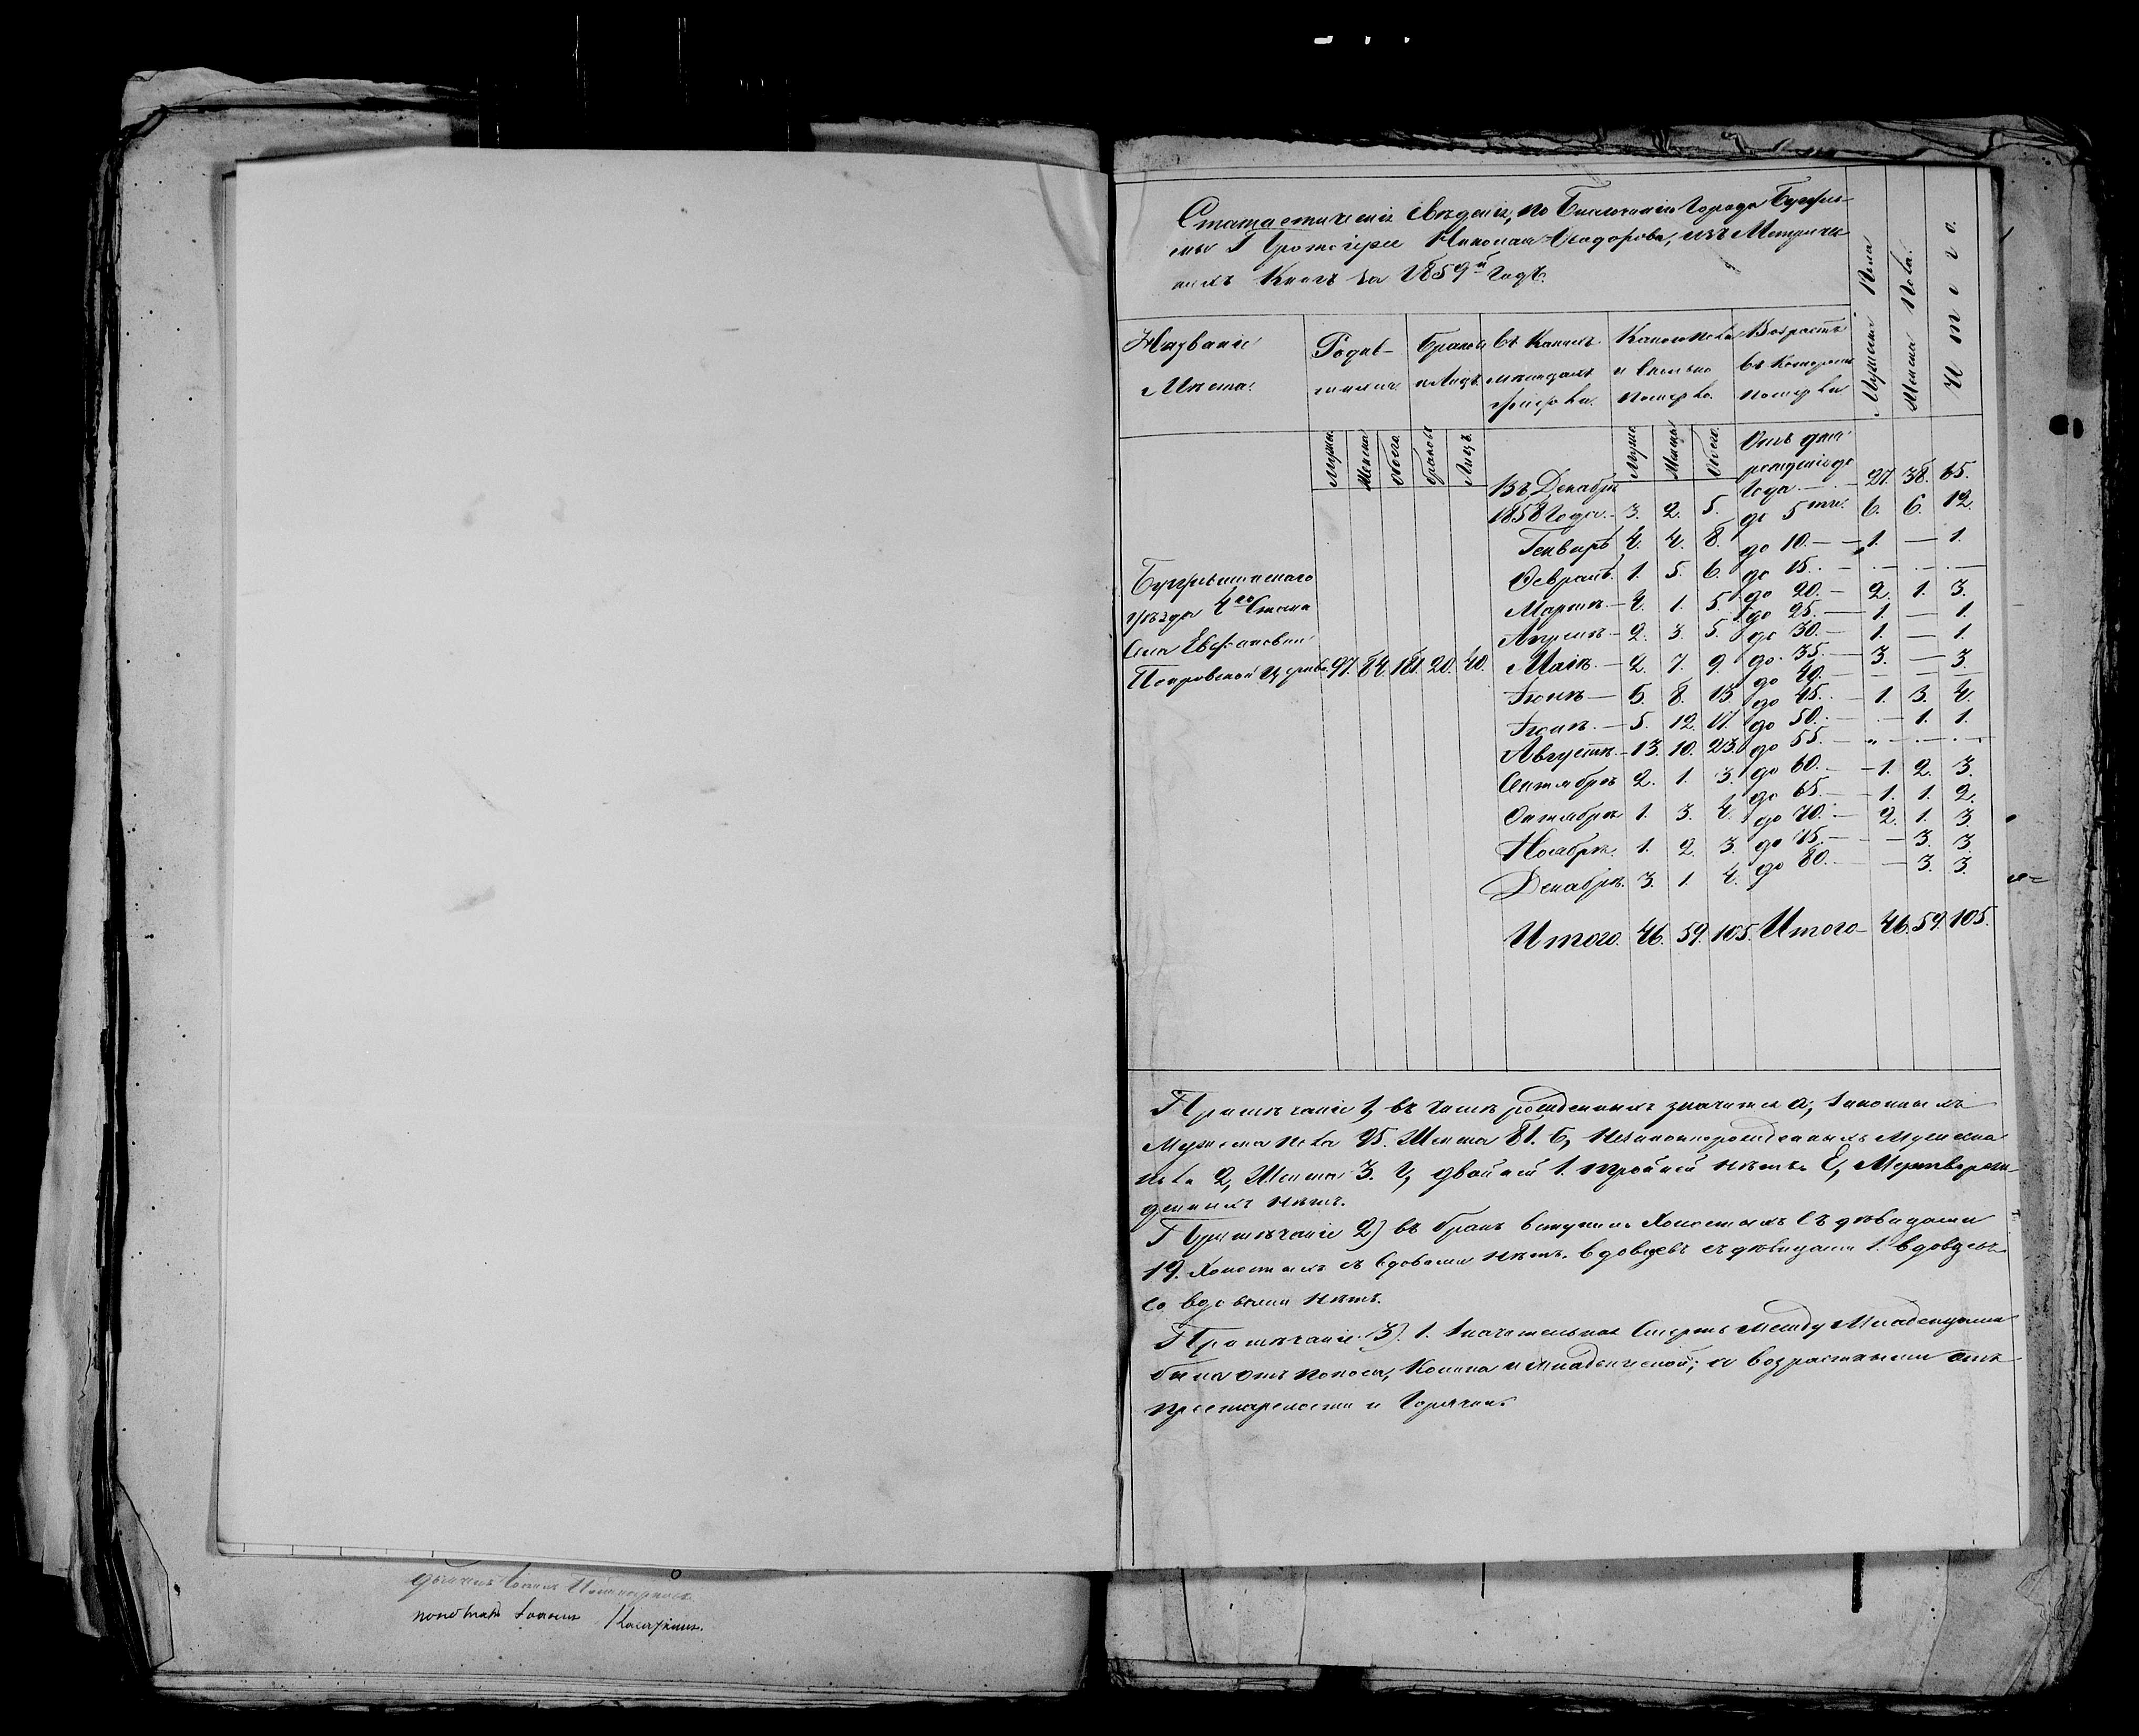 Статистическія свѣденія, по Благочинію Города Бугульмы
Протоіерея Николая Ѳеодорова, изъ Метрическихъ
Книгъ за 1859й Годъ.
Мужеска Пола
Женска Пола
Итого
Названіе Мѣста.
Родившихся
Браков и Лицъ
въ Какихъ мѣсяцахъ умерли
Какого пола и сколько померло.
Возрастъ въ которомъ померли
Мужс. Женска Всего. браковъ Лицъ.
Мужс Женс Всего.
Отъ дня рожденія до Года — 27. 38. 65.
Въ Декабрѣ 1858 Года. — 3. 2. 5. до 5ти. 6. 6. 12.
Генварѣ 4. 4. 8. до 10. — 1. — 1.
Февралѣ. 1. 5. 6. до 15. — — — —
Мартѣ. — 4. 1. 5. до 20. — 2. 1. 3.
до 25. — 1. — 1.
Апрѣлѣ — 2. 3. 5. до 30. — 1. — 1.
Бугульминскаго
уѣзда 4го Стана
Села
Покровской Церкви 97. 84. 181. 20. 40.
Маіѣ. — 2. 7. 9. до 35. — 3. — 3.
до 40. — — — —
Іюнѣ — 5. 8. 13. до 45. — 1. 3. 4.
Іюлѣ. — 5. 12. 17. до 50. — — 1. 1.
Августѣ. — 13. 10. 23. до 55. — „ — —
Сентябрѣ 2. 1. 3. до 60. — 1. 2. 3.
до 65. — 1. 1. 2.
Октябрѣ 1. 3. 4. до 70. — 2. 1. 3.
Ноябрѣ. 1. 2. 3. до 75. — — 3. 3.
Декабрѣ. 3. 1. 4. до 80. — — 3. 3.
Итого. 46. 59. 105. Итого — 46. 59. 105.
Примѣчаніе 1, въ числѣ рожденныхъ значится а, законныхъ
Мужеска пола 95. Женска 81. б, Незаконнорожденныхъ Мужеска
пола 2, Женска 3. г, двойней 1. тройней нѣтъ. Е, Мертворожденныхъ
нѣтъ.
Примѣчаніе 2) въ бракъ вступило Холостыхъ съ дѣвицами
19. Холостыхъ съ вдовами нѣтъ. вдовцевъ съ дѣвицами 1. вдовцевъ
со вдовами нѣтъ.
Примѣчаніе 3). 1. Значительная Смерть между Младенцами
была отъ поноса, Кашля и младенческой; а возрастными отъ
престарелости и Горячки